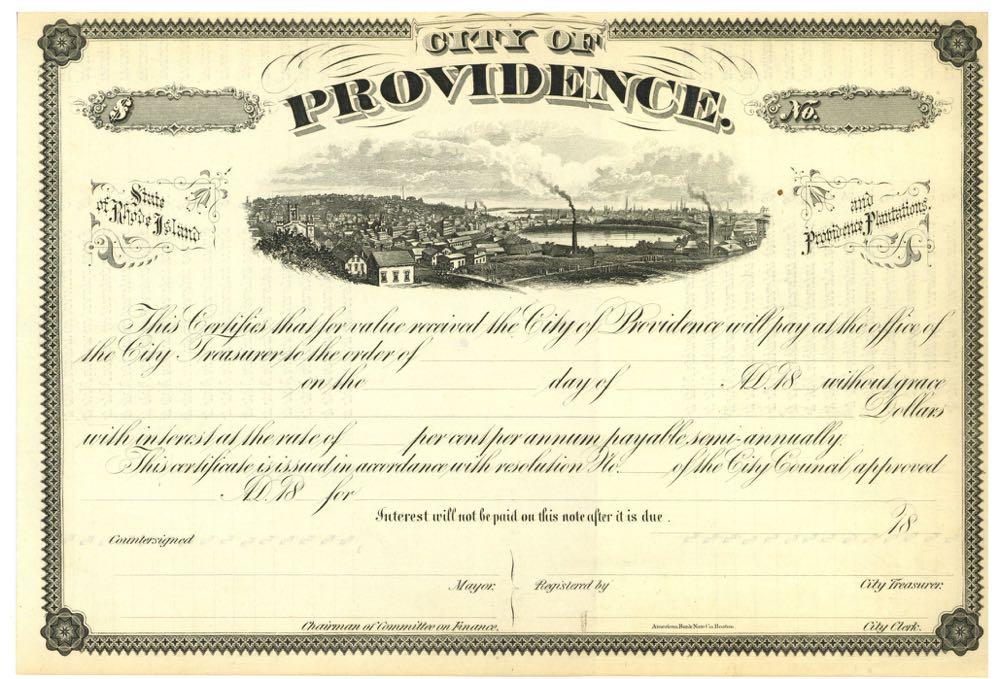 CITY OF
PROVIDENCE.
$
No.
State
of Rhode Island
and
Providence Plantations.
This Certifies that for value received the City of Providence will pay at the office of
the City Treasurer to the order of
on the day of A.D. 18 without grace
Dollars
with interest at the rate of per cent per annum payable semi-annually.
This certificate is issued in accordance with resolution No. of the City Council approved
A.D. 18 for
Interest will not be paid on this note after it is due.
18
Countersigned
Mayor. Registered by City Treasurer.
Chairman of Committee on Finance. American Bank Note Co. Boston. City Clerk.